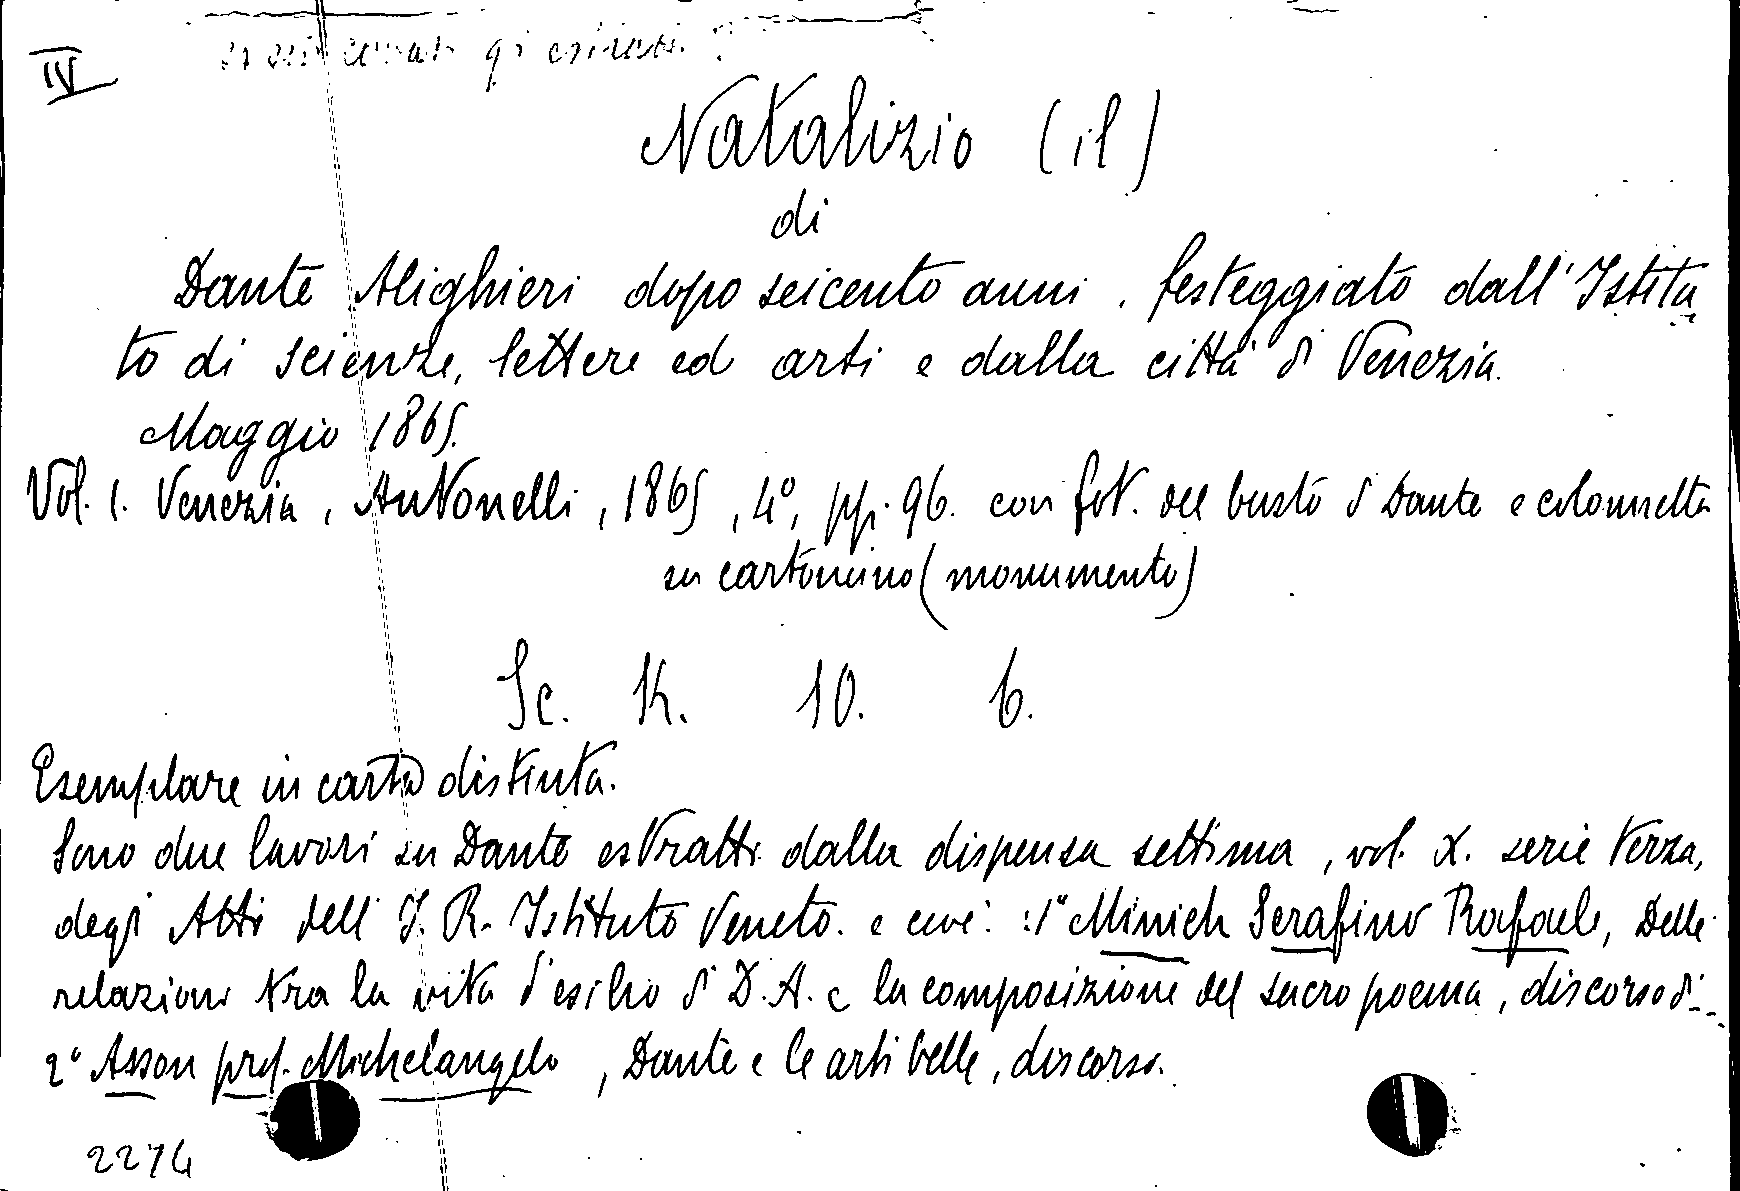 IV
Natalizio (il)
di
Dante Alighieri dopo seicento anni. festeggiato dall'Istitu
to di scienze, lettere ed arti e dalla città di Venezia.
Maggio 1865.
Vol. I. Venezia, Antonelli, 1865, 4°, pp. 96. con fot. del busto di Dante e colonnetta
su cartoncino (monumento)
Sc. K. 10. 6.
Esemplare in carta distinta.
Sono due lavori su Dante estratti dalla dispensa settima, vol. X. serie terza,
degli Atti dell' I. R. Istituto Veneto. e cioè: 1° Minich Serafino Rafaele, Delle
relazioni tra la vita d'esilio di D. A. e la composizione del sacro poema, discorso di
2° Asson prof. Michelangelo, Dante e le arti belle, discorso.
2274